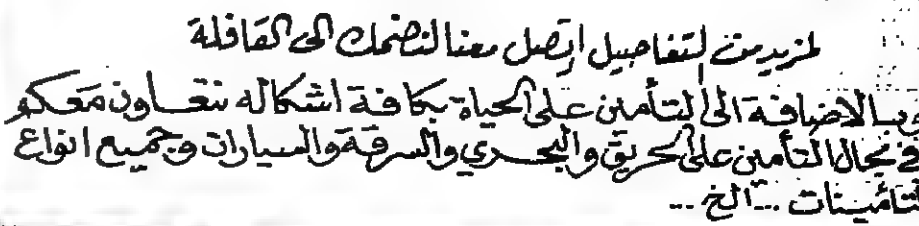 لمزيد من التفاصيل إتصل معنا لنضمك الى القافلة
وبالاضافة الى التأمين على الحياة بكافة اشكاله نتعاون معكم
في مجال التأمين على الحريق والبحري والسرقة والسيارات وجميع انواع
التأمينات ... الخ ...